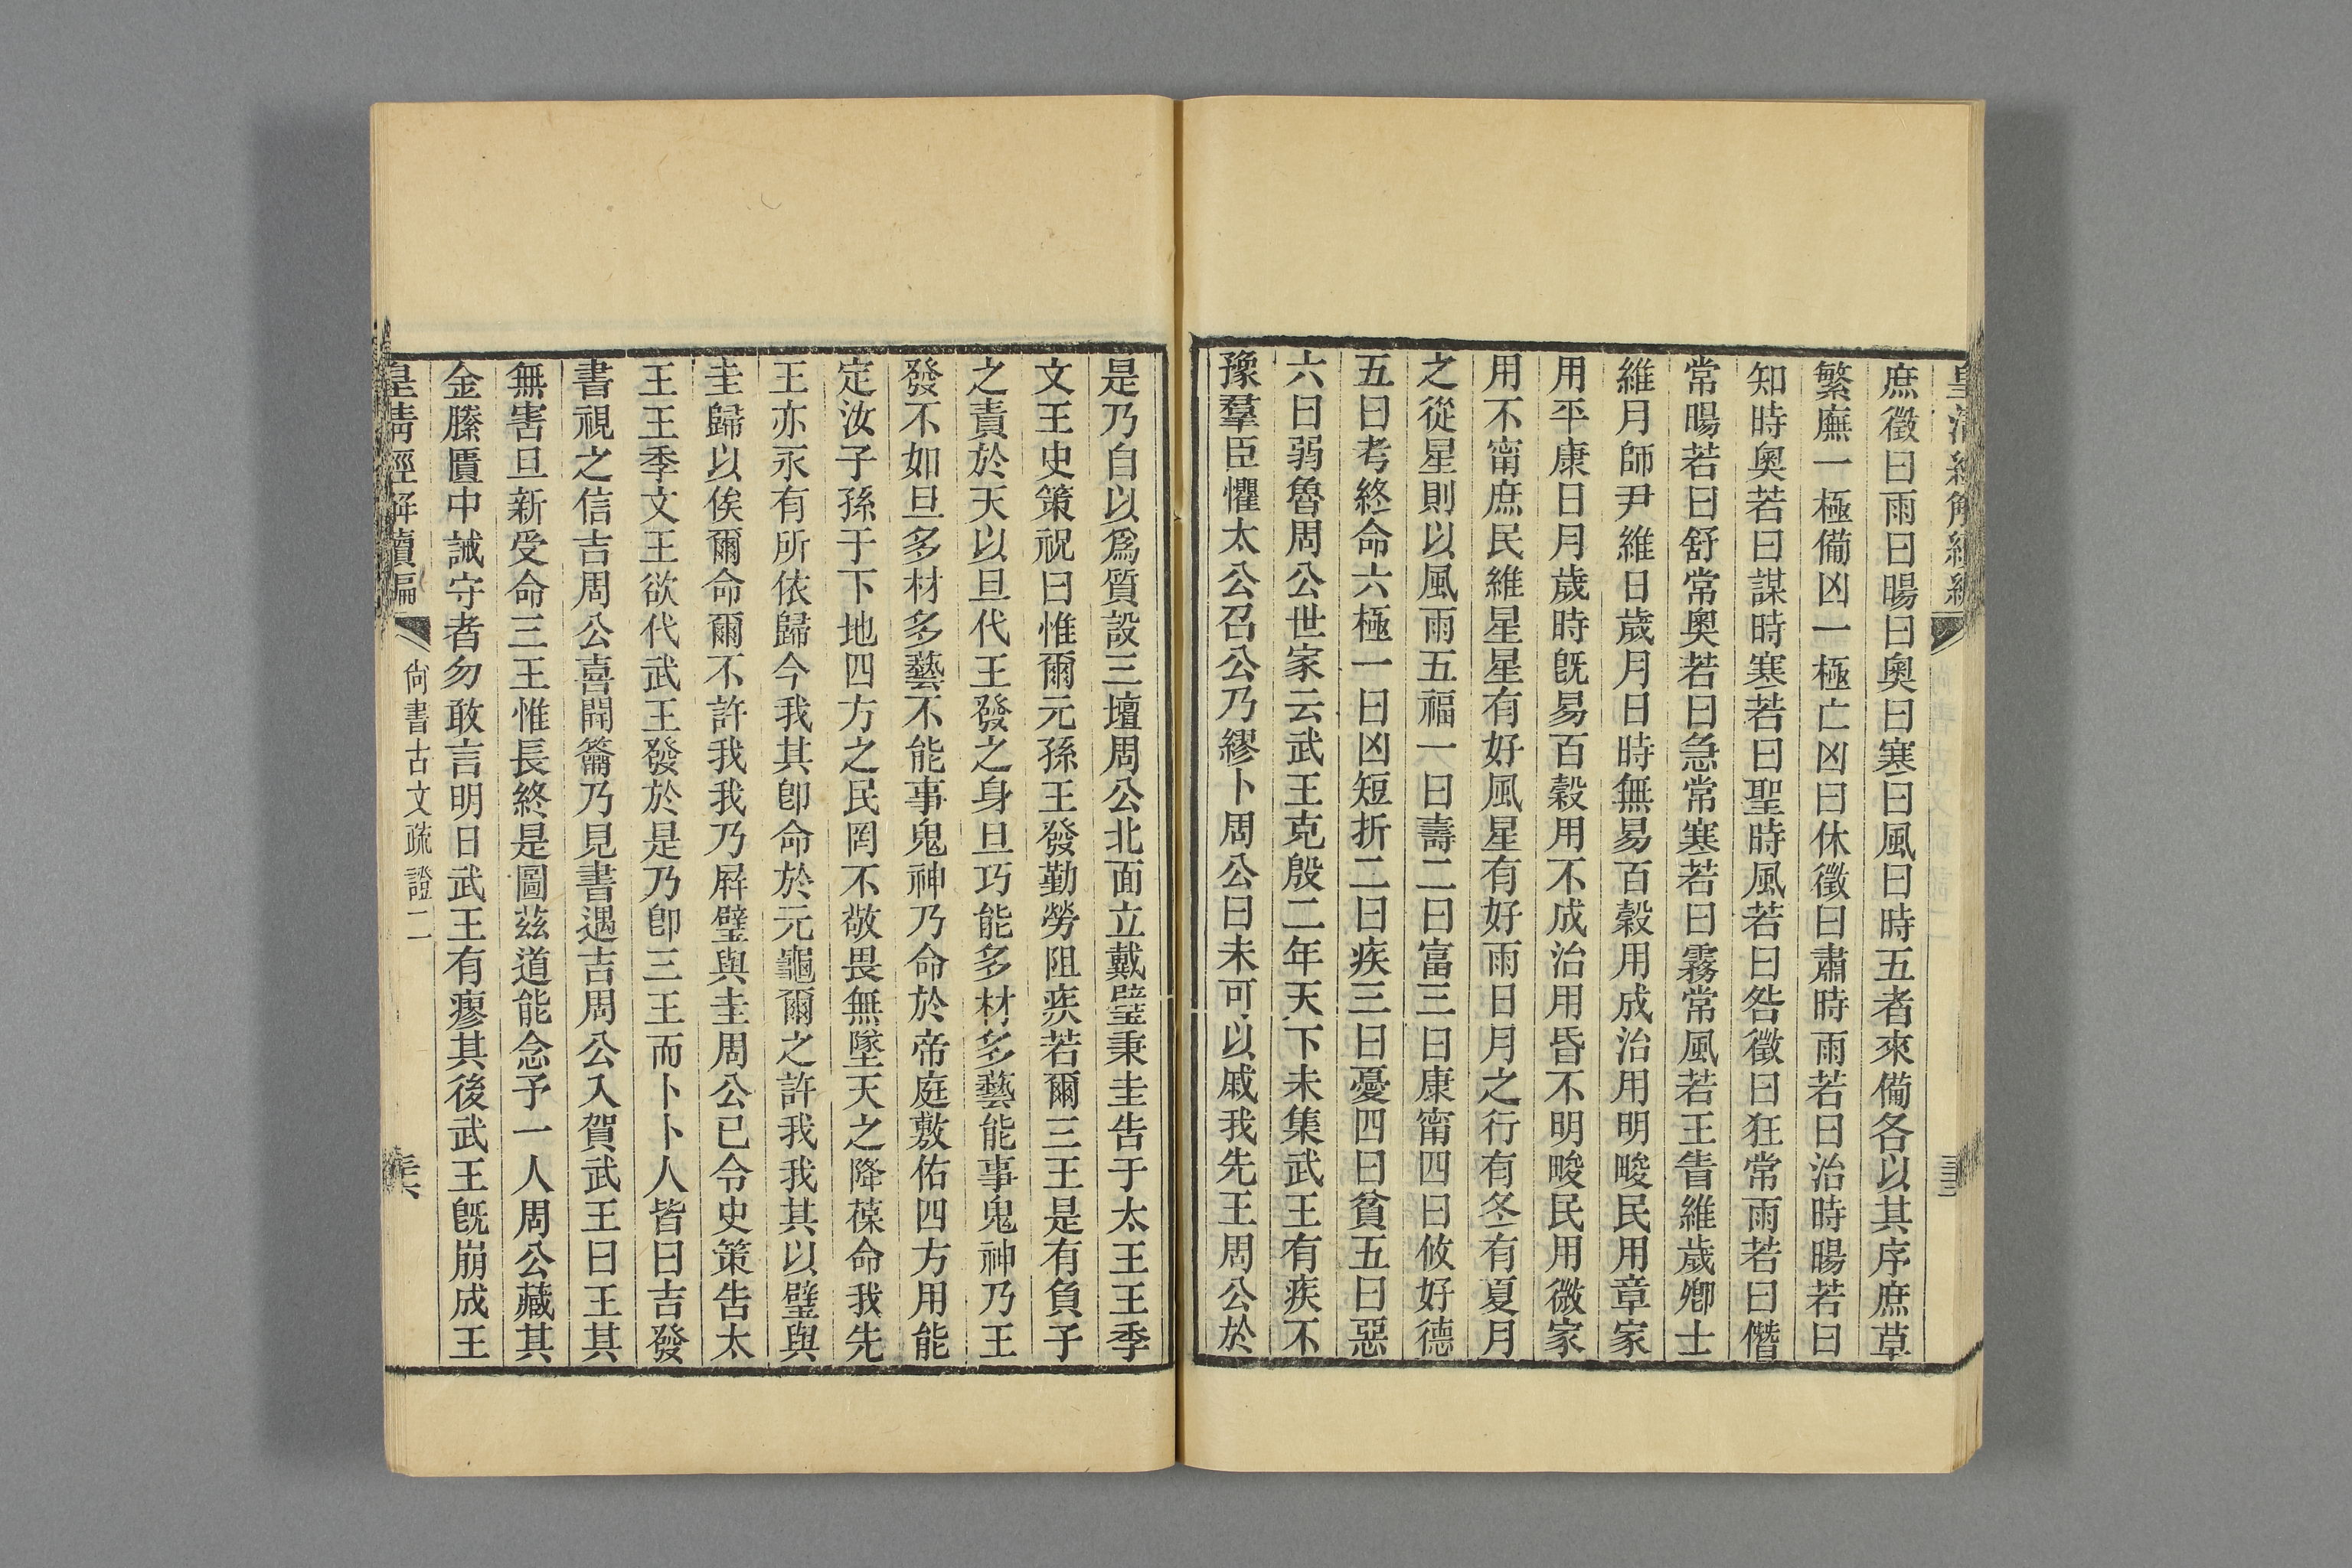 庶徵曰雨曰暘曰奧曰寒曰風曰時五者來備各以其序庶草
繁廡一極備凶一極亡凶曰休徵曰肅時雨若曰治時暘若曰
知時奧若曰謀時寒若曰聖時風若曰咎徵曰狂常雨若曰僭
常暘若曰舒常奧若曰急常寒若曰霧常風若王眚維歲卿士
維月師尹維日歲月日時無易百穀用成治用明畯民用章家
用平康日月歲時旣易百穀用不成治用昏不明畯民用微家
用不甯庶民維星星有好風星有好雨日月之行有冬有夏月
之從星則以風雨五福一曰壽二曰富三曰康甯四曰攸好德
五曰考終命六極一曰凶短折二曰疾三曰憂四曰貧五曰惡
六曰弱魯周公世家云武王克殷二年天下未集武王有疾不
豫羣臣懼太公召公乃繆卜周公曰未可以戚我先王周公於
是乃自以爲質設三壇周公北面立戴璧秉圭告于太王王季
文王史策祝曰惟爾元孫王發勤勞阻疾若爾三王是有負子
之責於天以旦代王發之身旦巧能多材多藝能事鬼神乃王
發不如旦多材多藝不能事鬼神乃命於帝庭敷佑四方用能
定汝子孫于下地四方之民罔不敬畏無墜天之降葆命我先
王亦永有所依歸今我其卽命於元龜爾之許我我其以璧與
圭歸以俟爾命爾不許我我乃屛璧與圭周公已令史策告太
王王季文王欲代武王發於是乃卽三王而卜卜人皆曰吉發
書視之信吉周公喜開籥乃見書遇吉周公入賀武王曰王其
無害旦新受命三王惟長終是圖茲道能念予一人周公藏其
金縢匱中誡守者勿敢言明日武王有瘳其後武王旣崩成王
皇清經解續編 尙書古文疏證二